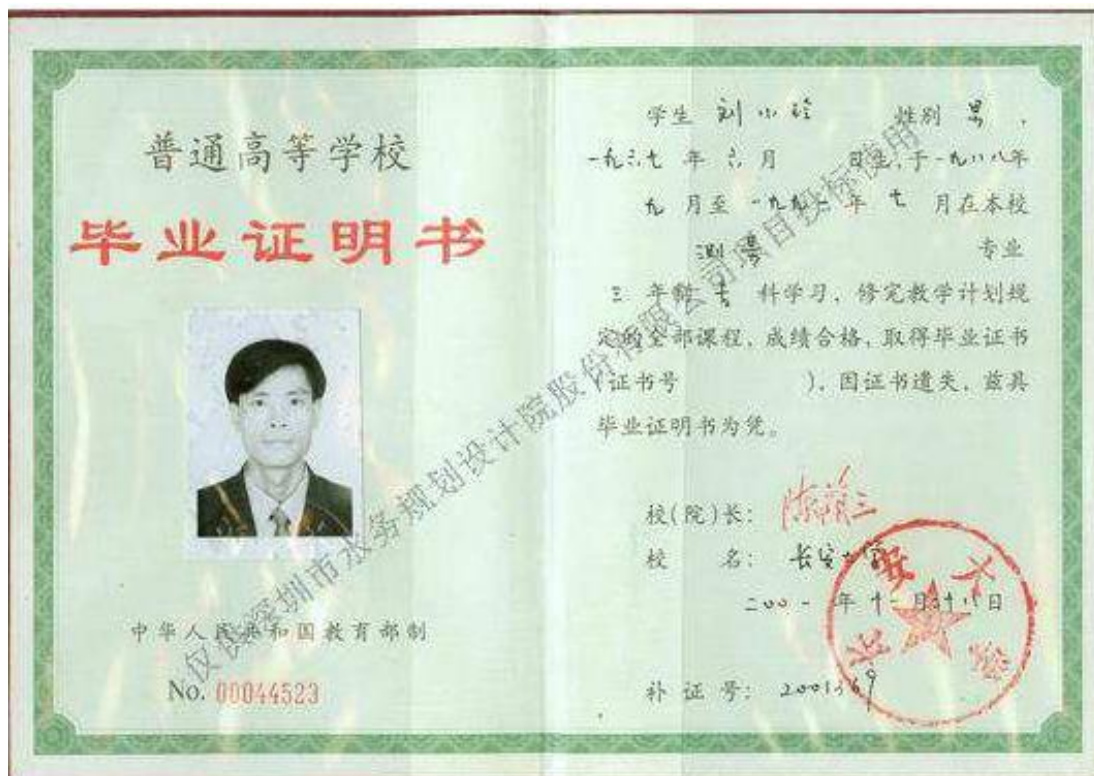 普通高等学校
毕业证明书
中华人民共和国教育部制
No. 00044523
学生 刘小玲 性别 男,
一九六七 年 六 月 日生,于一九八八年
九 月至一九九一年 七 月在本校
测量 专业
三 年制 专 科学习,修完教学计划规
定的全部课程,成绩合格,取得毕业证书
(证书号 ),因证书遗失,兹具
毕业证明书为凭。
校(院)长:
校 名:长安大学
二〇〇一年十一月 日
补 证 号:
长安大学
仅供深圳市水务规划设计院股份有限公司项目投标使用